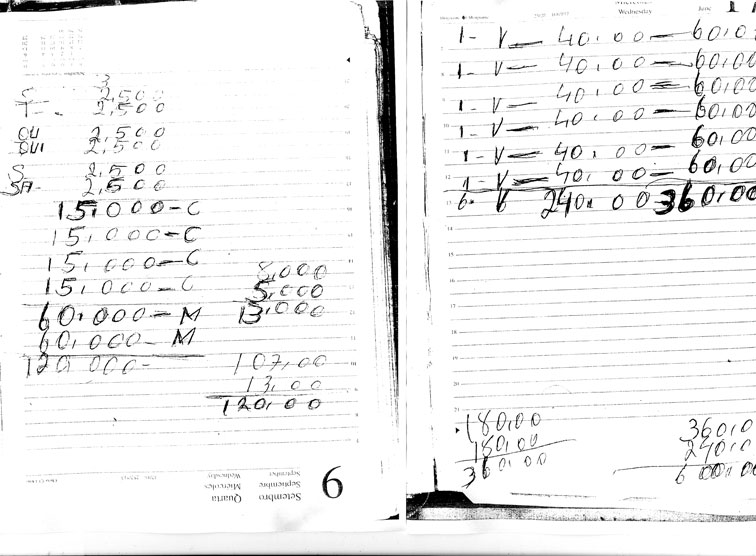 3
S 2,500
T - 2,500
QU 2,500
QUI 2,500
S 2,500
SA- 2,500
15,000-C
15,000-C
15,000-C
15,000-C
60,000-M
60,000-M
120,000-
8,000
5,000
13,000
107,00
13,00
120,00
9
Setembro Quarta
Septiembre Miercoles
September Wednesday
Wednesday June 17
1- V- 40,00 - 60,0
1- V- 40,00 - 60,00
1- V- 40,00 - 60,00
1- V- 40,00 - 60,00
1- V- 40,00 - 60,00
1- V- 40,00 - 60,00
6- V 240,00 360,00
180,00
180,00
360,00
360,0
240,0
600,00